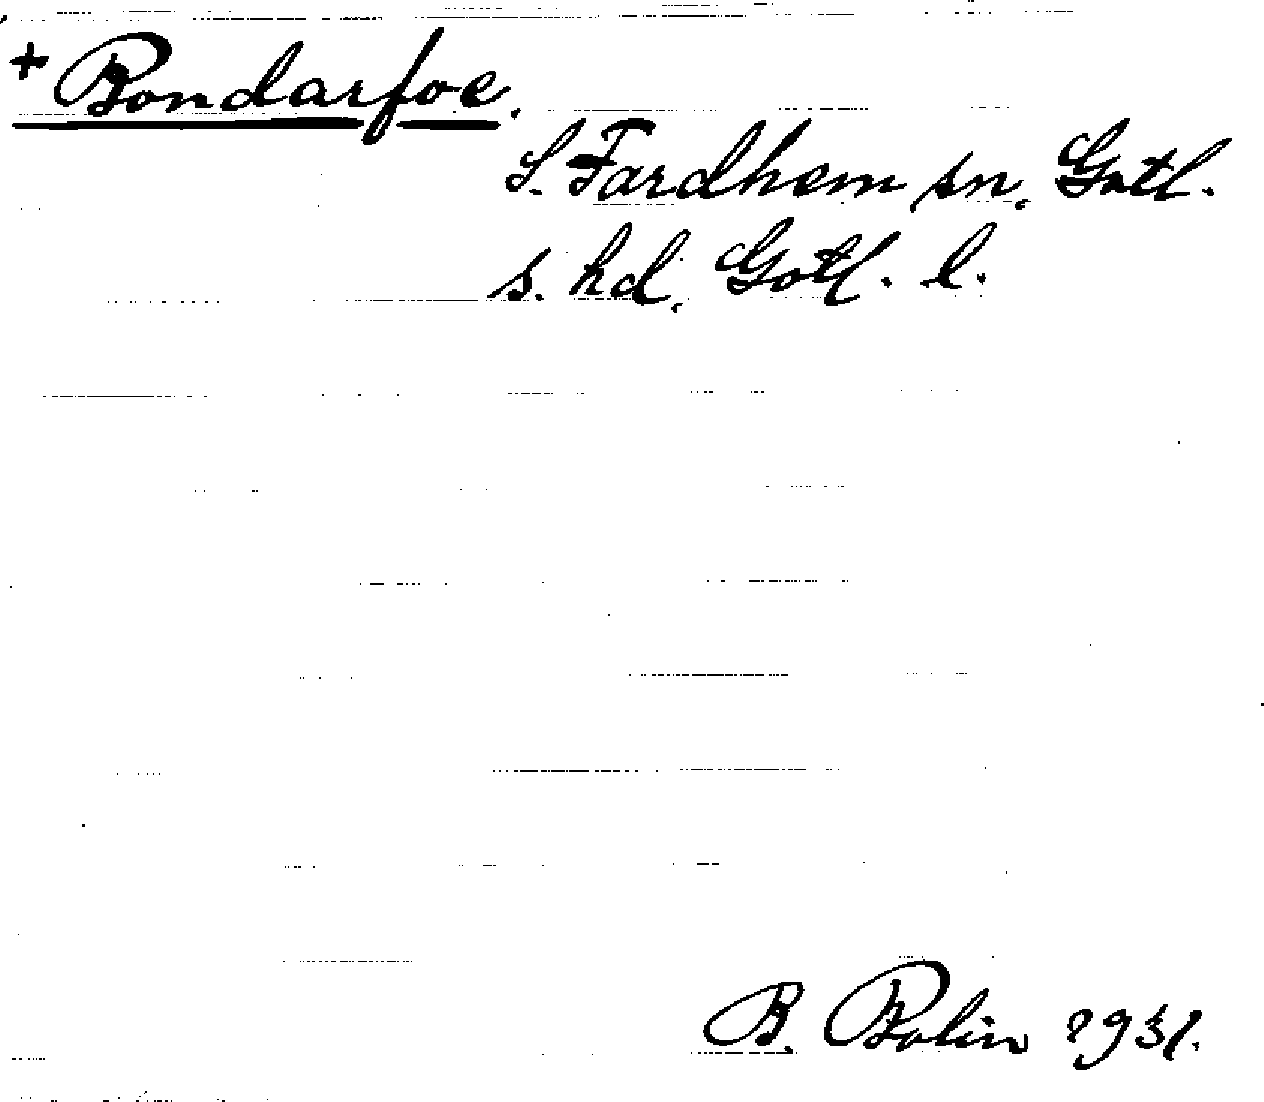 + Bondarfoe.
S. Fardhem sn, Gotl.
s. hd, Gotl. l.
B. Bolin 1931.